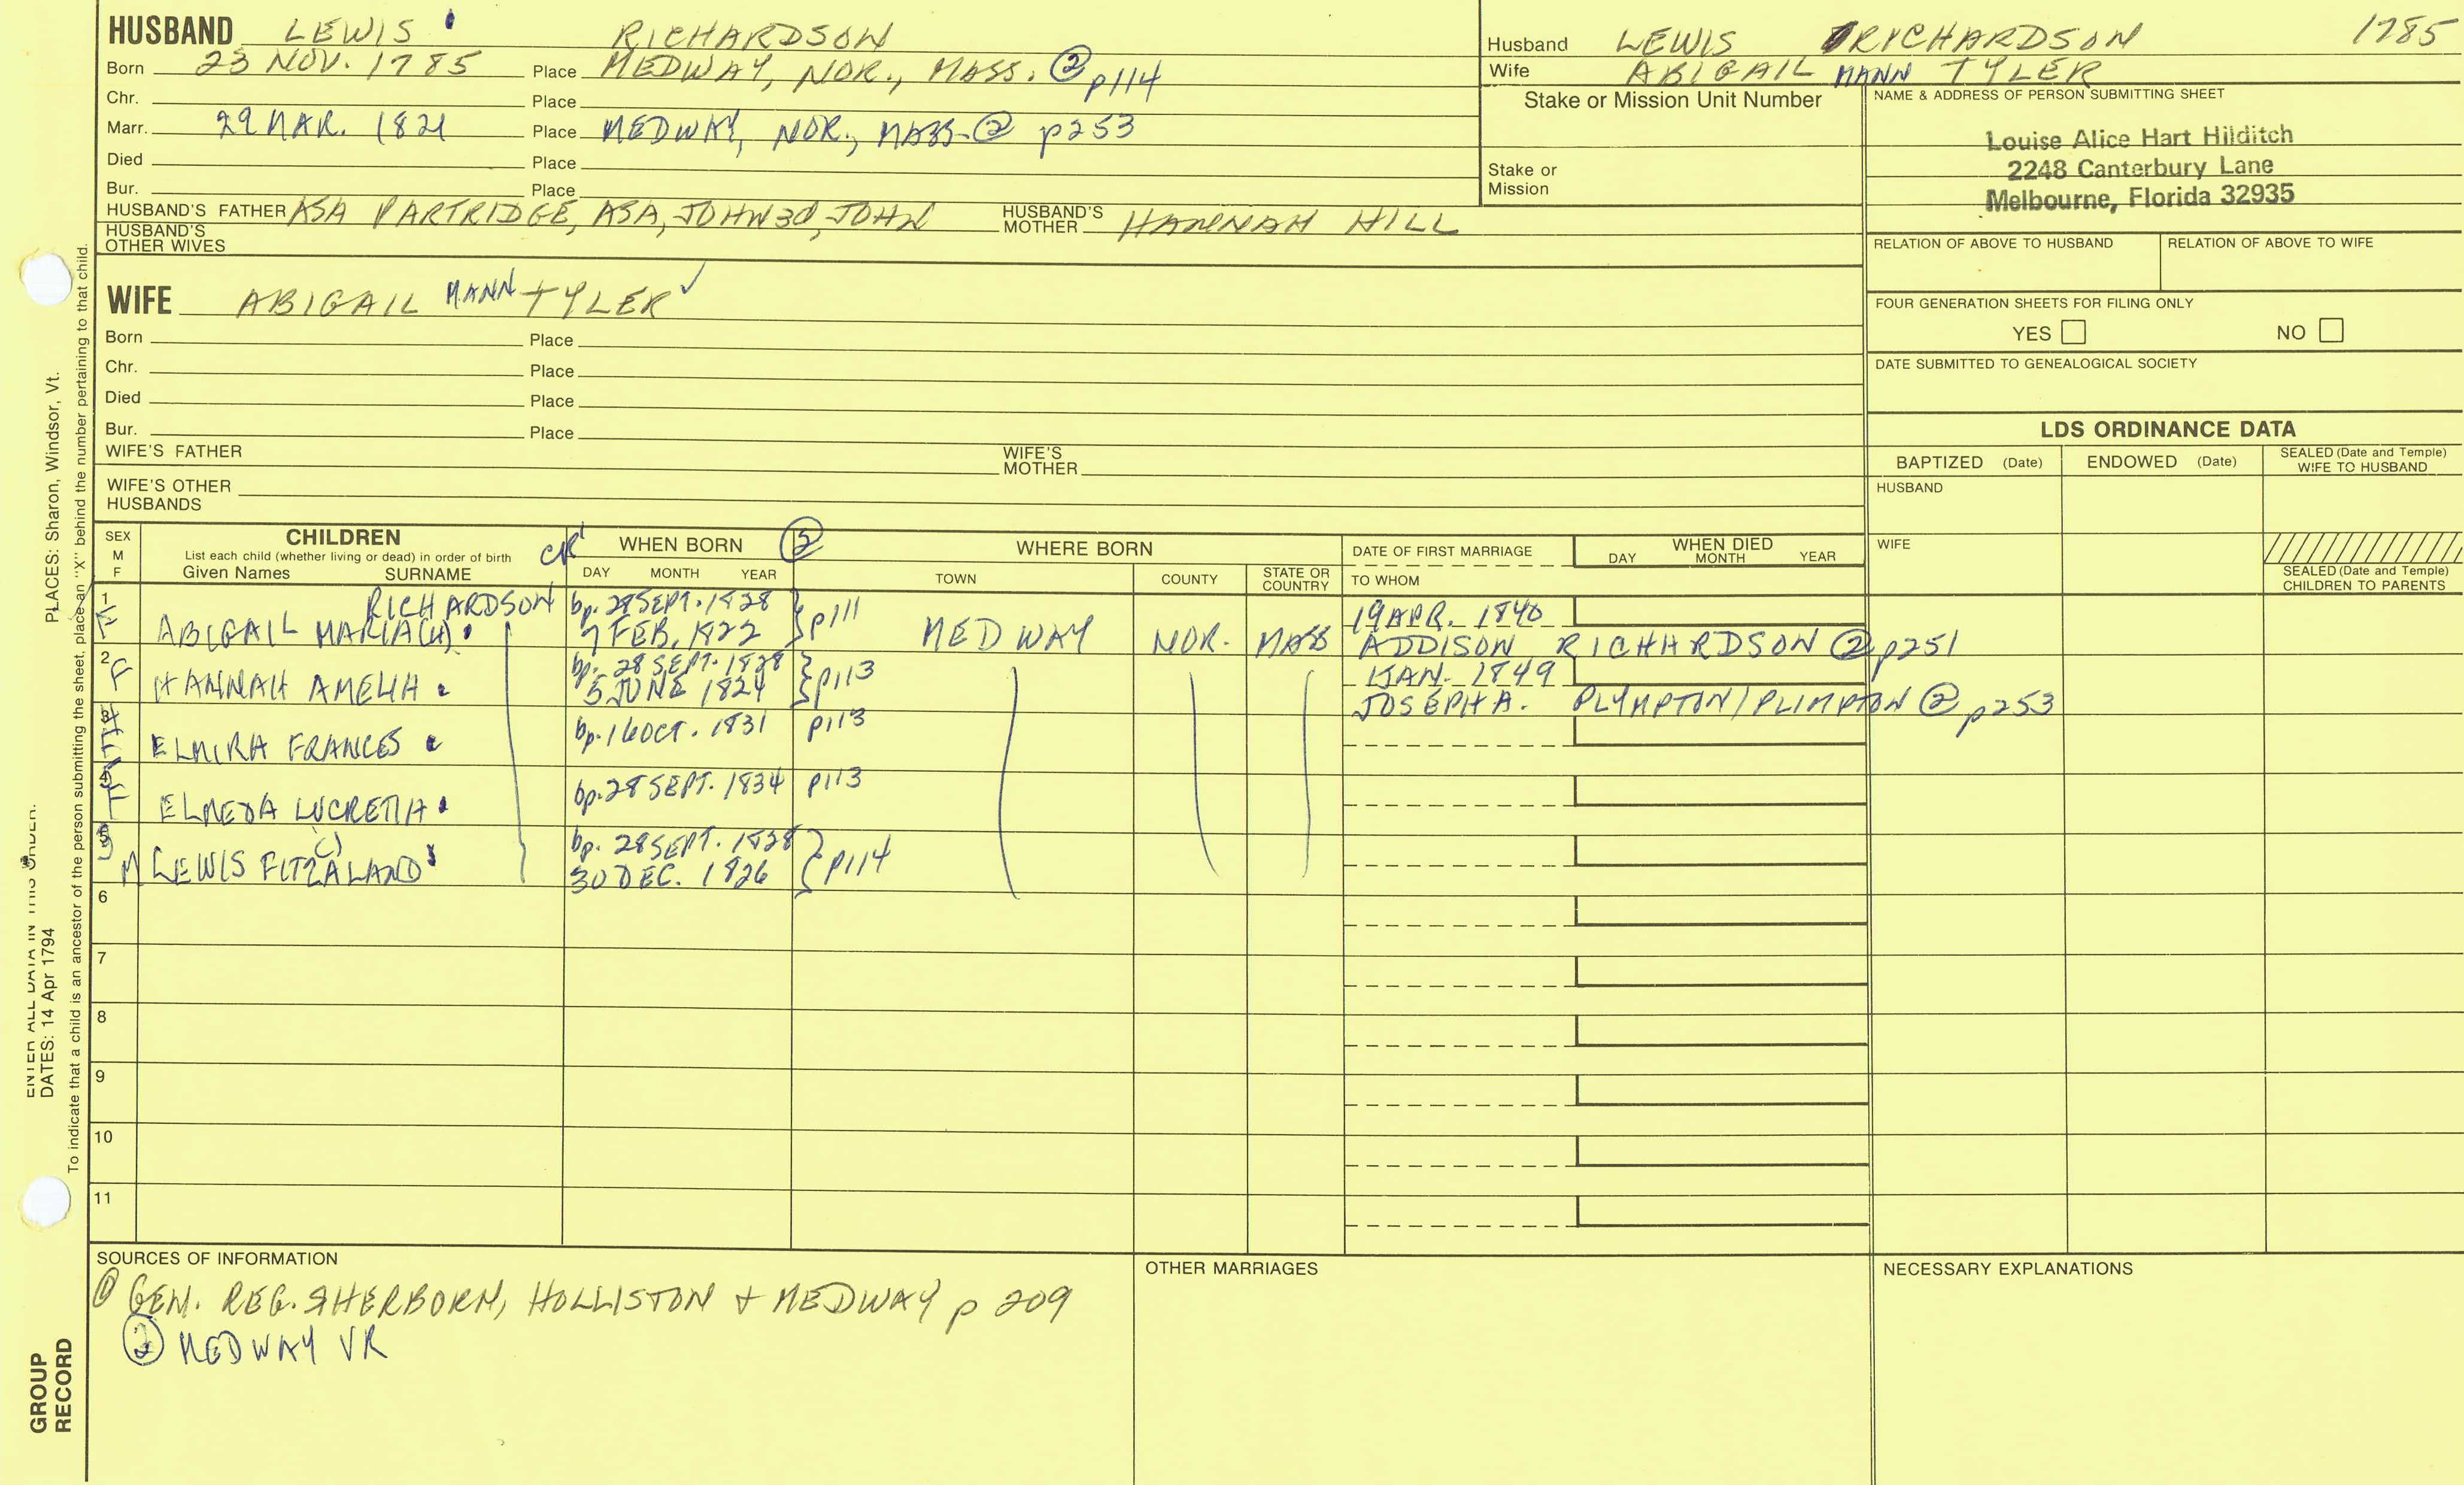 HUSBAND LEWIS RICHARDSON
Born 23 NOV. 1785 Place MEDWAY, NOR., MASS. ② p114
Chr. Place
Marr. 29 MAR. 1821 Place MEDWAY, NOR., MASS. ② p253
Died Place
Bur. Place
HUSBAND'S FATHER ASA PARTRIDGE, ASA, JOHN 3D, JOHN HUSBAND'S MOTHER HANNAH HILL
HUSBAND'S OTHER WIVES
Husband LEWIS RICHARDSON 1785
Wife ABIGAIL MANN TYLER
Stake or Mission Unit Number
Stake or
Mission
NAME & ADDRESS OF PERSON SUBMITTING SHEET
Louise Alice Hart Hilditch
2248 Canterbury Lane
Melbourne, Florida 32935
RELATION OF ABOVE TO HUSBAND RELATION OF ABOVE TO WIFE
FOUR GENERATION SHEETS FOR FILING ONLY
YES NO
DATE SUBMITTED TO GENEALOGICAL SOCIETY
WIFE ABIGAIL MANN TYLER ✓
Born Place
Chr. Place
Died Place
Bur. Place
WIFE'S FATHER WIFE'S MOTHER
WIFE'S OTHER
HUSBANDS
LDS ORDINANCE DATA
BAPTIZED (Date) ENDOWED (Date) SEALED (Date and Temple) WIFE TO HUSBAND
HUSBAND
WIFE
SEALED (Date and Temple)
CHILDREN TO PARENTS
SEX
M
F
CHILDREN
List each child (whether living or dead) in order of birth
Given Names SURNAME
CR' WHEN BORN ②
DAY MONTH YEAR
WHERE BORN
TOWN COUNTY STATE OR COUNTRY
DATE OF FIRST MARRIAGE
TO WHOM
WHEN DIED
DAY MONTH YEAR
1 RICHARDSON bp. 28 SEPT. 1828 19 APR. 1840
F ABIGAIL MARIA(H) 7 FEB. 1822 } p111 MEDWAY NOR. MASS ADDISON RICHARDSON ② p251
2 F HANNAH AMELIA bp. 28 SEPT. 1828 } p113 1 JAN. 1849
5 JUNE 1824 JOSEPH A. PLYMPTON/PLIMPTON ② p253
3 F ELMIRA FRANCES bp. 16 OCT. 1831 p113
4 F ELMEDA LUCRETIA bp. 28 SEPT. 1834 p113
5 M LEWIS FITZALAND bp. 28 SEPT. 1828 } p114
30 DEC. 1826
6
7
8
9
10
11
SOURCES OF INFORMATION
① GEN. REG. SHERBORN, HOLLISTON + MEDWAY p 209
② MEDWAY VR
OTHER MARRIAGES
NECESSARY EXPLANATIONS
ENTER ALL DATA IN THIS ORDER:
DATES: 14 Apr 1794 PLACES: Sharon, Windsor, Vt.
To indicate that a child is an ancestor of the person submitting the sheet, place an "X" behind the number pertaining to that child.
GROUP
RECORD